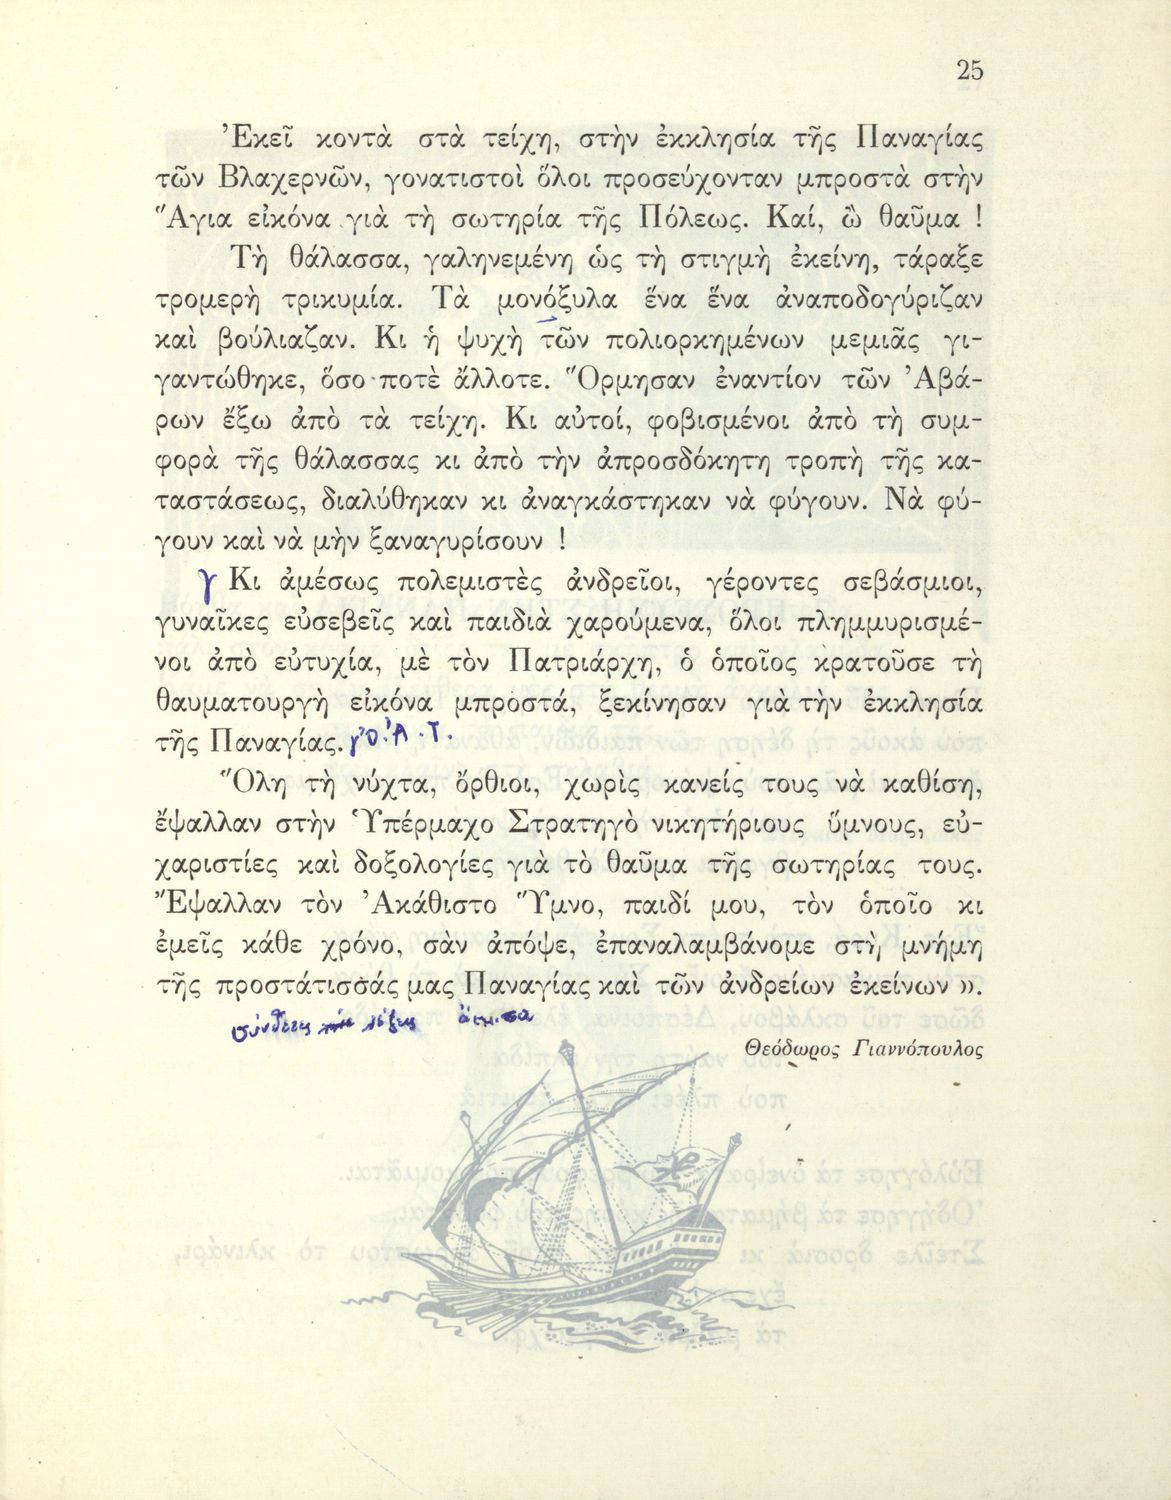 25
Ἐκεῖ κοντὰ στὰ τείχη, στὴν ἐκκλησία τῆς Παναγίας
τῶν Βλαχερνῶν, γονατιστοὶ ὅλοι προσεύχονταν μπροστὰ στὴν
Ἅγια εἰκόνα γιὰ τὴ σωτηρία τῆς Πόλεως. Καί, ὢ θαῦμα !
Τὴ θάλασσα, γαληνεμένη ὡς τὴ στιγμὴ ἐκείνη, τάραξε
τρομερὴ τρικυμία. Τὰ μονόξυλα ἕνα ἕνα ἀναποδογύριζαν
καὶ βούλιαζαν. Κι ἡ ψυχὴ τῶν πολιορκημένων μεμιᾶς γι-
γαντώθηκε, ὅσο ποτὲ ἄλλοτε. Ὅρμησαν ἐναντίον τῶν Ἀβά-
ρων ἔξω ἀπὸ τὰ τείχη. Κι αὐτοί, φοβισμένοι ἀπὸ τὴ συμ-
φορὰ τῆς θάλασσας κι ἀπὸ τὴν ἀπροσδόκητη τροπὴ τῆς κα-
ταστάσεως, διαλύθηκαν κι ἀναγκάστηκαν νὰ φύγουν. Νὰ φύ-
γουν καὶ νὰ μὴν ξαναγυρίσουν !
γ Κι ἀμέσως πολεμιστὲς ἀνδρεῖοι, γέροντες σεβάσμιοι,
γυναῖκες εὐσεβεῖς καὶ παιδιὰ χαρούμενα, ὅλοι πλημμυρισμέ-
νοι ἀπὸ εὐτυχία, μὲ τὸν Πατριάρχη, ὁ ὁποῖος κρατοῦσε τὴ
θαυματουργὴ εἰκόνα μπροστά, ξεκίνησαν γιὰ τὴν ἐκκλησία
τῆς Παναγίας.
Ὅλη τὴ νύχτα, ὄρθιοι, χωρὶς κανείς τους νὰ καθίση,
ἔψαλλαν στὴν Ὑπέρμαχο Στρατηγὸ νικητήριους ὕμνους, εὐ-
χαριστίες καὶ δοξολογίες γιὰ τὸ θαῦμα τῆς σωτηρίας τους.
Ἔψαλλαν τὸν Ἀκάθιστο Ὕμνο, παιδί μου, τὸν ὁποῖο κι
ἐμεῖς κάθε χρόνο, σὰν ἀπόψε, ἐπαναλαμβάνομε στὴ μνήμη
τῆς προστάτισσάς μας Παναγίας καὶ τῶν ἀνδρείων ἐκείνων ».
Θεόδωρος Γιαννόπουλος